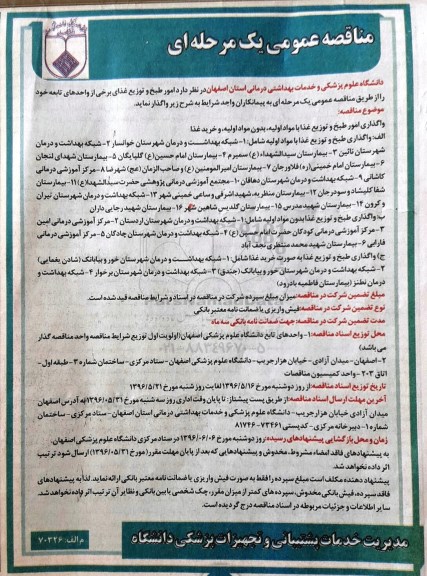 مناقصه عمومی یک مرحله ای
دانشگاه علوم پزشکی و خدمات بهداشتی درمانی استان اصفهان در نظر دارد امور طبخ و توزیع غذای برخی از واحدهای تابعه خود
را از طریق مناقصه عمومی یک مرحله ای به پیمانکاران واجد شرایط به شرح زیر واگذار نماید.
موضوع مناقصه:
واگذاری امور طبخ و توزیع غذا با مواد اولیه، بدون مواد اولیه، و خرید غذا
الف: واگذاری طبخ و توزیع غذا با مواد اولیه شامل: ۱-شبکه بهداشت و درمان شهرستان خوانسار ۲-شبکه بهداشت و درمان
شهرستان نائین ۳-بیمارستان سیدالشهداء (ع) سمیرم ۴-بیمارستان امام حسین(ع) گلپایگان ۵-بیمارستان شهدای لنجان
۶-بیمارستان امام خمینی(ره) فلاورجان ۷-بیمارستان امیرالمومنین (ع) و صاحب الزمان (عج) شهرضا ۸-مرکز آموزشی درمانی
کاشانی ۹-شبکه بهداشت و درمان شهرستان دهاقان ۱۰-مجتمع آموزشی درمانی پژوهشی حضرت سیدالشهداء(ع) ۱۱-بیمارستان
شفا کلیشاد و سودرجان ۱۲-بیمارستان منتظریه، شهید اشرفی و سامی خمینی شهر ۱۳-شبکه بهداشت و درمان شهرستان تیران
و کرون ۱۴-بیمارستان شهید مدرس ۱۵-بیمارستان گلدیس شاهین شهر ۱۶-بیمارستان شهید رجایی داران
ب: واگذاری طبخ و توزیع غذا بدون مواد اولیه شامل: ۱-شبکه بهداشت و درمان شهرستان اردستان ۲-مرکز آموزشی درمانی امین
۳-مرکز آموزشی درمانی کودکان حضرت امام حسین (ع) ۴-شبکه بهداشت و درمان شهرستان چادگان ۵-مرکز آموزشی درمانی
فارابی ۶-بیمارستان شهید محمد منتظری نجف آباد
ج) واگذاری طبخ و توزیع غذا به صورت خرید غذا شامل: ۱-شبکه بهداشت و درمان شهرستان خور و بیابانک (شادن یغمایی)
۲-شبکه بهداشت و درمان شهرستان خور و بیابانک (جندق) ۳-شبکه بهداشت و درمان شهرستان برخوار ۴-شبکه بهداشت و
درمان نطنز (بیمارستان فاطمیه بادرود)
مبلغ تضمین شرکت در مناقصه: میزان مبلغ سپرده شرکت در مناقصه در اسناد و شرایط مناقصه قید شده است.
نوع تضمین شرکت در مناقصه: فیش واریزی یا ضمانت نامه معتبر بانکی
مدت تضمین شرکت در مناقصه: جهت ضمانت نامه بانکی سه ماه
محل توزیع اسناد مناقصه: ۱- واحدهای تابع دانشگاه علوم پزشکی اصفهان (اولویت اول توزیع شرایط مناقصه واحد مناقصه گذار
می باشد)
۲-اصفهان- میدان آزادی - خیابان هزار جریب- دانشگاه علوم پزشکی اصفهان - ستاد مرکزی - ساختمان شماره ۳- طبقه اول-
اتاق ۲۰۳- واحد کمیسیون مناقصات
تاریخ توزیع اسناد مناقصه: از روز دوشنبه مورخ ۱۳۹۶/۵/۱۶ لغایت روز شنبه مورخ ۱۳۹۶/۵/۲۱
آخرین مهلت ارسال اسناد مناقصه: از طریق پست پیشتاز: تا پایان وقت اداری روز سه شنبه مورخ ۱۳۹۶/۰۵/۳۱ به آدرس اصفهان
میدان آزادی خیابان هزار جریب- دانشگاه علوم پزشکی و خدمات بهداشتی درمانی استان اصفهان - ستاد مرکزی - ساختمان
شماره ۱ - دبیرخانه مرکزی - کدپستی ۷۳۴۶۱-۸۱۷۴۶
زمان و محل بازگشایی پیشنهادهای رسیده: روز دوشنبه مورخ ۱۳۹۶/۰۶/۰۶ در ستاد مرکزی دانشگاه علوم پزشکی اصفهان.
به پیشنهادهای فاقد امضاء مشروط، مخدوش و پیشنهادهایی که بعد از پایان مهلت مقرر (مورخ ۱۳۹۶/۰۵/۳۱) ارسال شود ترتیب
اثر داده نخواهد شد.
پیشنهاد دهنده مکلف است مبلغ سپرده را فقط به صورت فیش واریزی یا ضمانت نامه معتبر بانکی ارائه نماید. لذا به پیشنهادهای
فاقد سپرده، فیش بانکی مخدوش، سپرده های کمتر از میزان مقرر، چک شخصی یا بین بانکی و نظایر آن ترتیب اثر داده نخواهد شد.
سایر اطلاعات و جزئیات مربوطه در اسناد مناقصه درج گردیده است.
م الف: ۷۰۳۲۶
مدیریت خدمات پشتیبانی و تجهیزات پزشکی دانشگاه